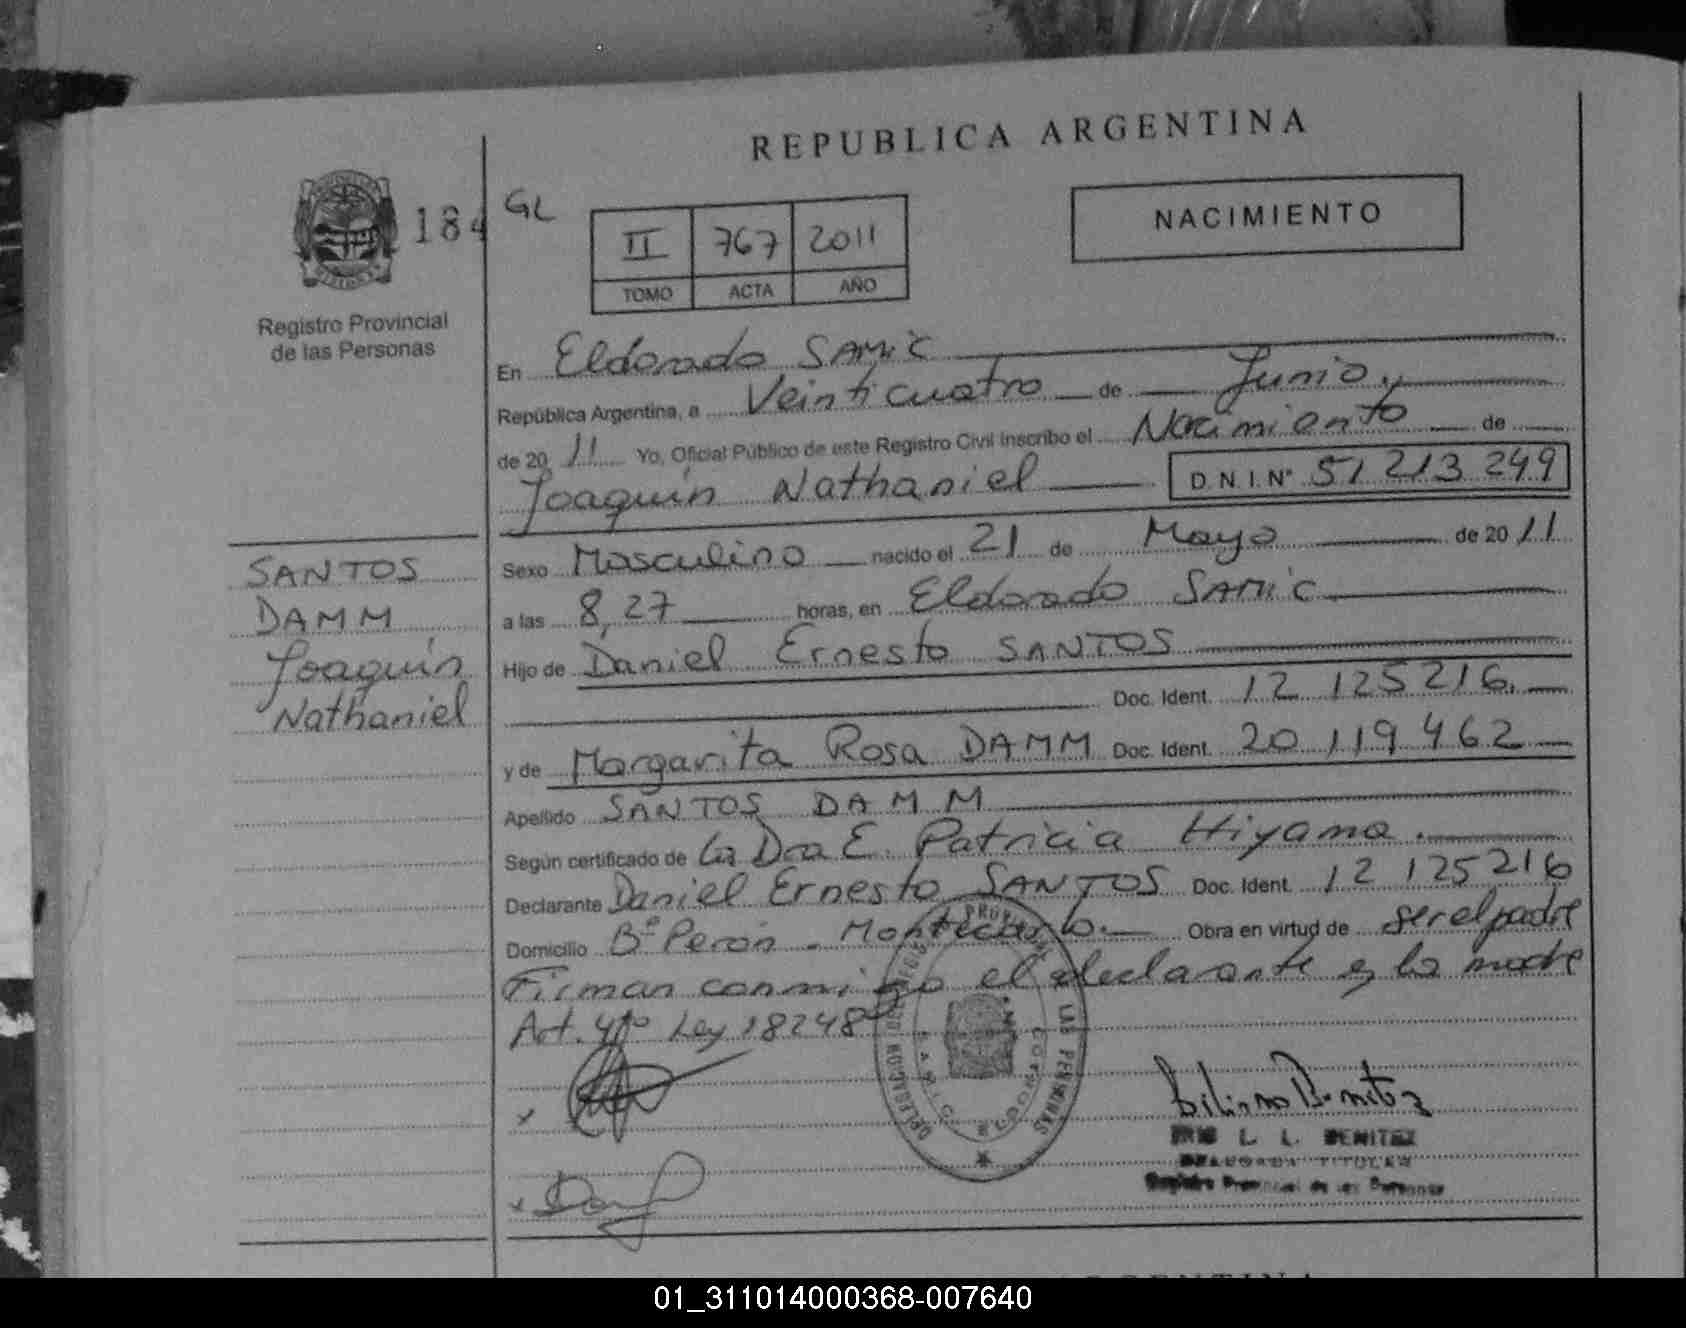 REPUBLICA ARGENTINA
184
GL
II 767 2011
TOMO ACTA AÑO
NACIMIENTO
Registro Provincial
de las Personas
En Eldorado SAMIC
República Argentina, a Veinticuatro de Junio
de 2011 Yo, Oficial Público de este Registro Civil inscribo el Nacimiento de
Joaquín Nathaniel D.N.I.Nº 51 213 249
Sexo Masculino nacido el 21 de Mayo de 2011
a las 8,27 horas, en Eldorado SAMIC
Hijo de Daniel Ernesto SANTOS
Doc. Ident. 12 125216.
y de Margarita Rosa DAMM Doc. Ident. 20 119 462
Apellido SANTOS DAMM
Según certificado de La Dra E. Patricia Hiyama.
Declarante Daniel Ernesto SANTOS Doc. Ident. 12 125216
Domicilio Bº Perón - Montecarlo. Obra en virtud de ser el padre
Firman conmigo el declarante y la madre
Art. Ley 18248
SANTOS
DAMM
Joaquín
Nathaniel
x
x
L. L. BENITEZ
DELEGADA TITULAR
Registro Provincial de las Personas
LAS PERSONAS
ARGENTINA
01_311014000368-007640